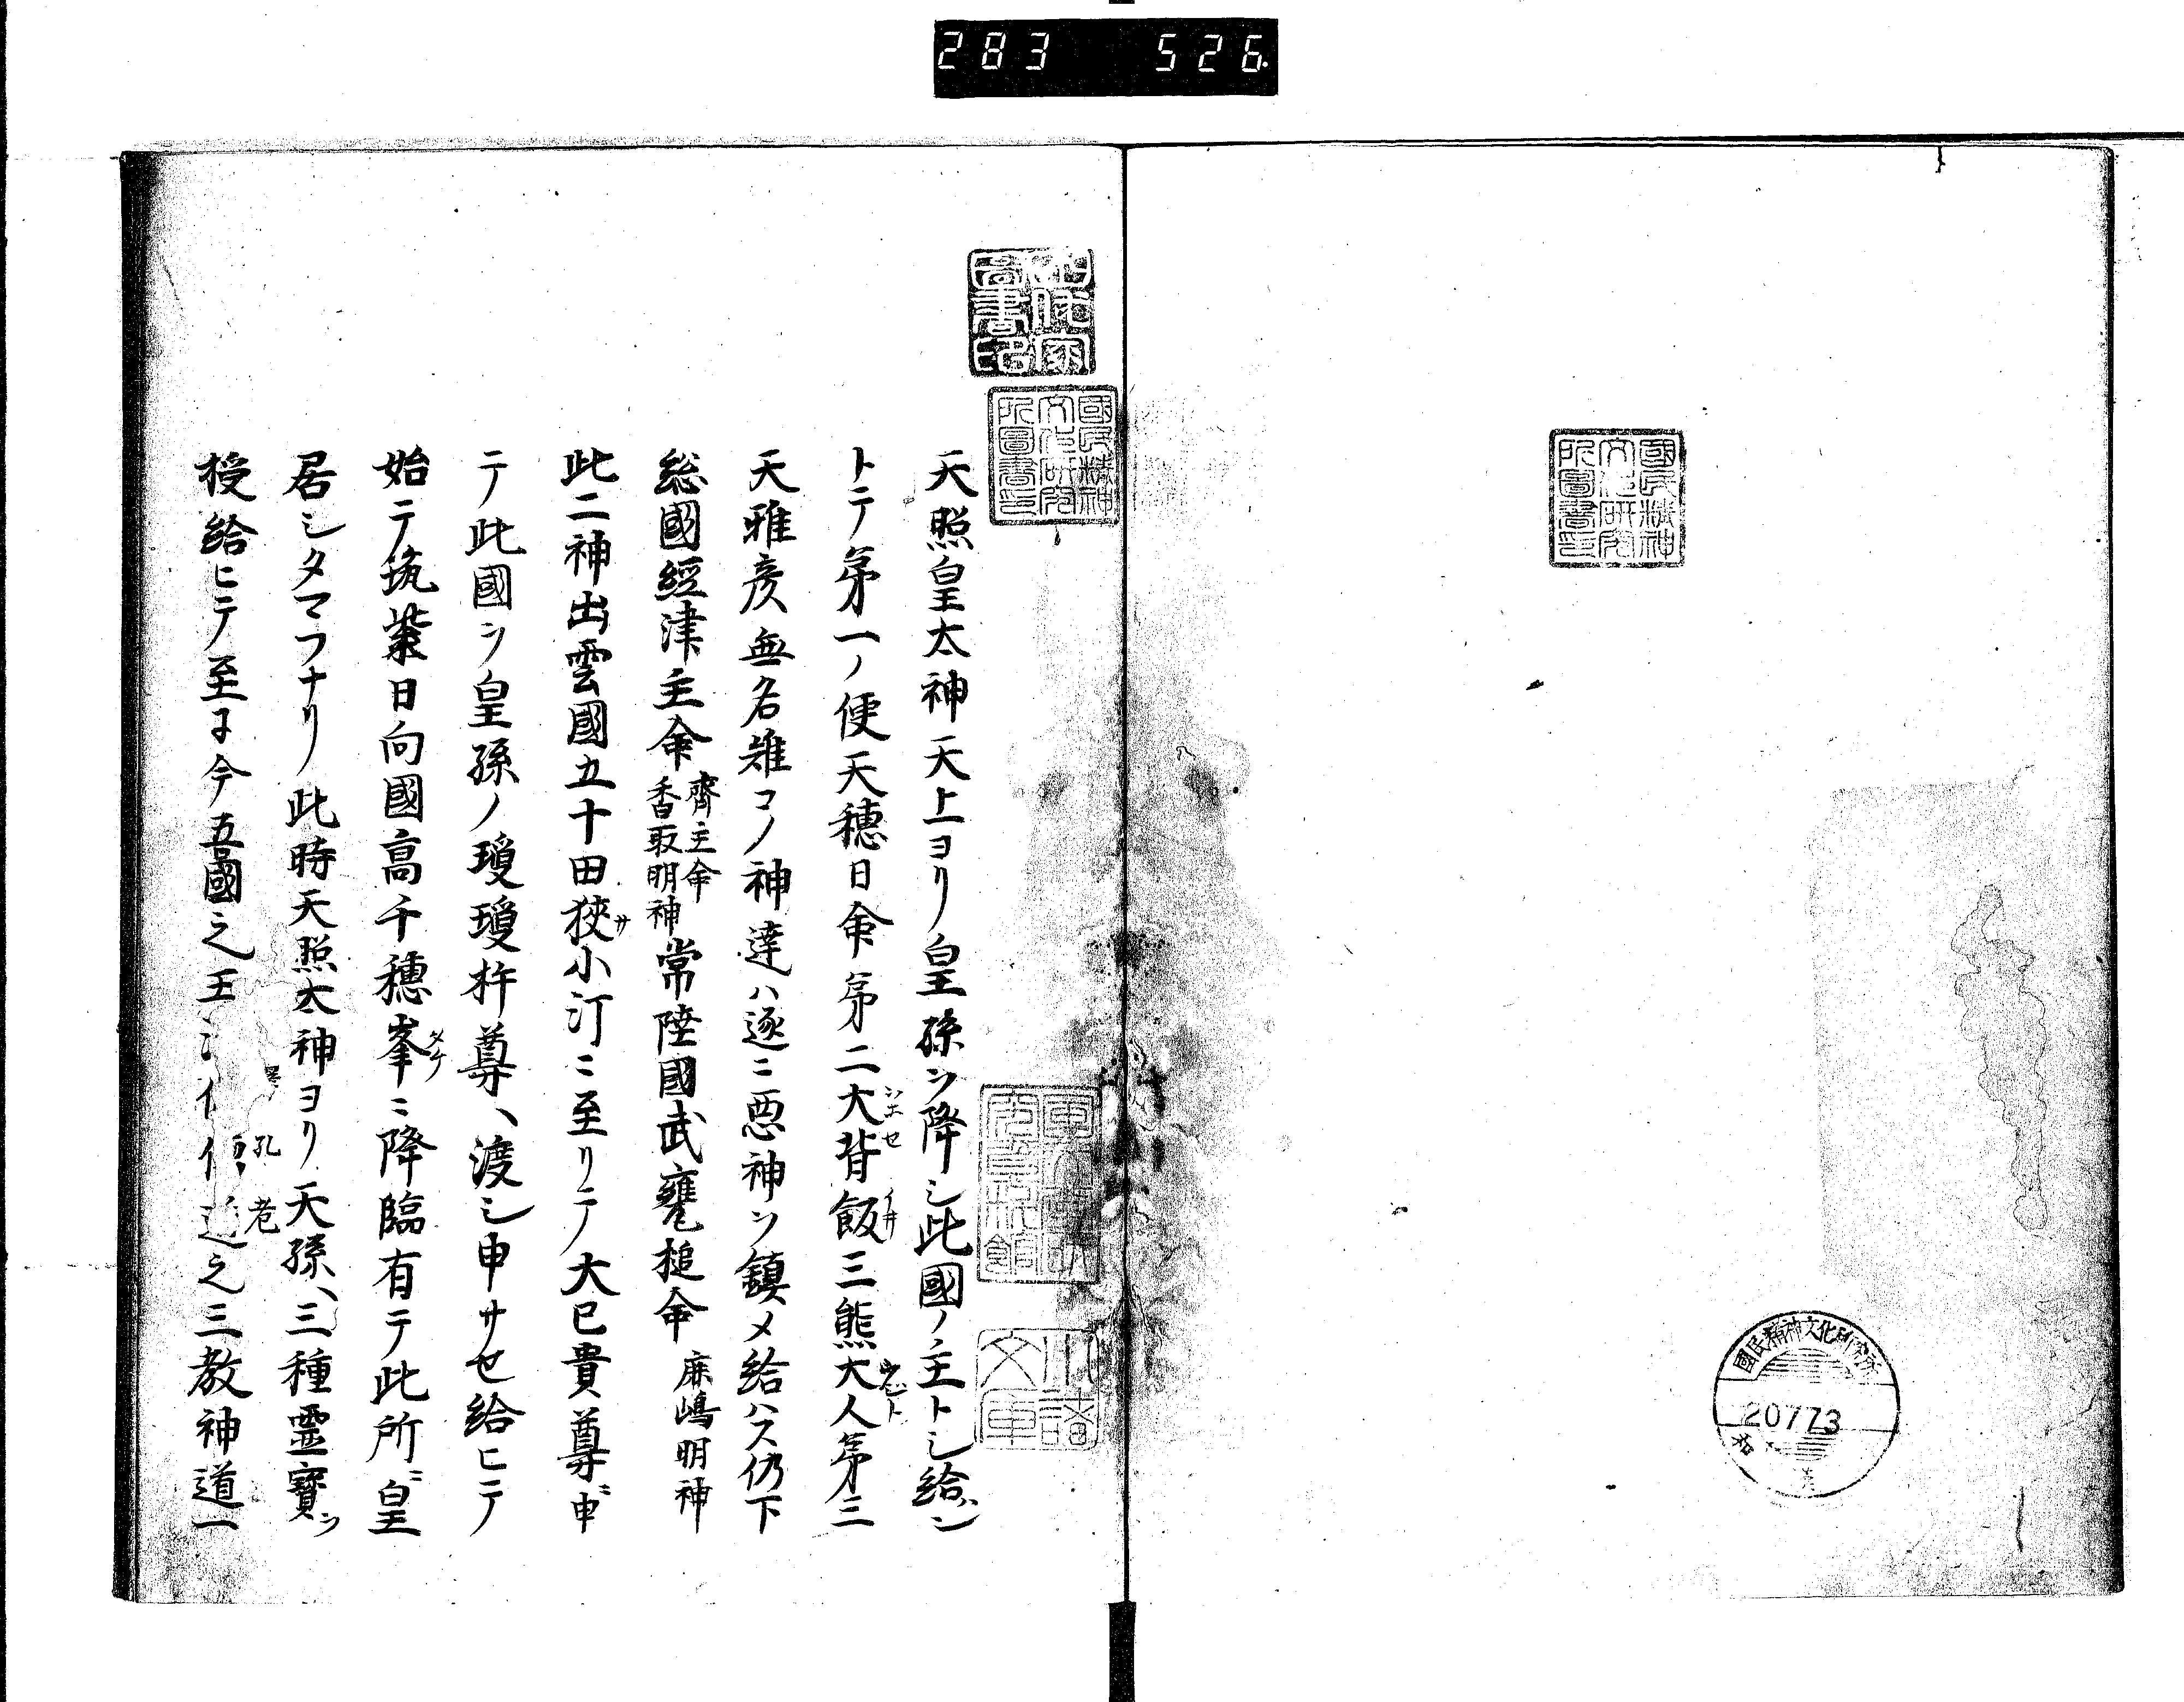 283 526
國民精神文化研究所圖書印
國民精神文化研究所
20773
圖書印
國民精神文化研究所圖書印
文庫
天照皇太神天上ヨリ皇孫ヲ降シ此國ノ主トシ給ハン
トテ第一ノ使天穂日命第二大背飯三熊大人第三
シエセ イヰ ウシト
天雅彦無名雉コノ神達ハ逐ニ惡神ヲ鎮メ給ハス仍下
総國經津主命
齋主命
香取明神
常陸國武甕槌命
鹿嶋明神
此二神出雲國五十田狹小汀ニ至リテ大己貴尊ニ申
サ
テ此國ヲ皇孫ノ瓊瓊杵尊ヘ渡シ申サセ給ヒテ
始テ筑紫日向國高千穗峯ニ降臨有テ此所ニ皇
タケ
居シタマフナリ此時天照太神ヨリ天孫ヘ三種霊寳ヲ
授給ヒテ至今吾國之王
孔 老
之三教神道一